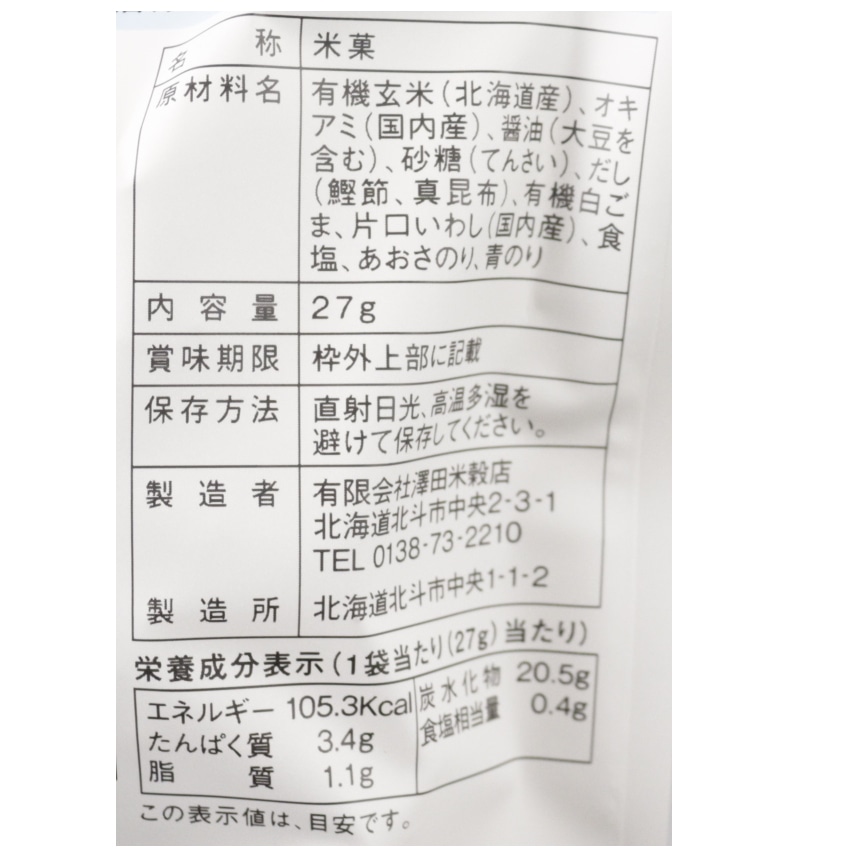 名称 米菓
原材料名 有機玄米(北海道産)、オキ
アミ(国内産)、醤油(大豆を
含む)、砂糖(てんさい)、だし
(鰹節、真昆布)、有機白ご
ま、片口いわし(国内産)、食
塩、あおさのり、青のり
内容量 27g
賞味期限 枠外上部に記載
保存方法 直射日光、高温多湿を
避けて保存してください。
製造者 有限会社澤田米穀店
北海道北斗市中央2-3-1
TEL 0138-73-2210
製造所 北海道北斗市中央1-1-2
栄養成分表示(1袋当たり(27g)当たり)
エネルギー 105.3Kcal
たんぱく質 3.4g
脂質 1.1g
炭水化物 20.5g
食塩相当量 0.4g
この表示値は、目安です。